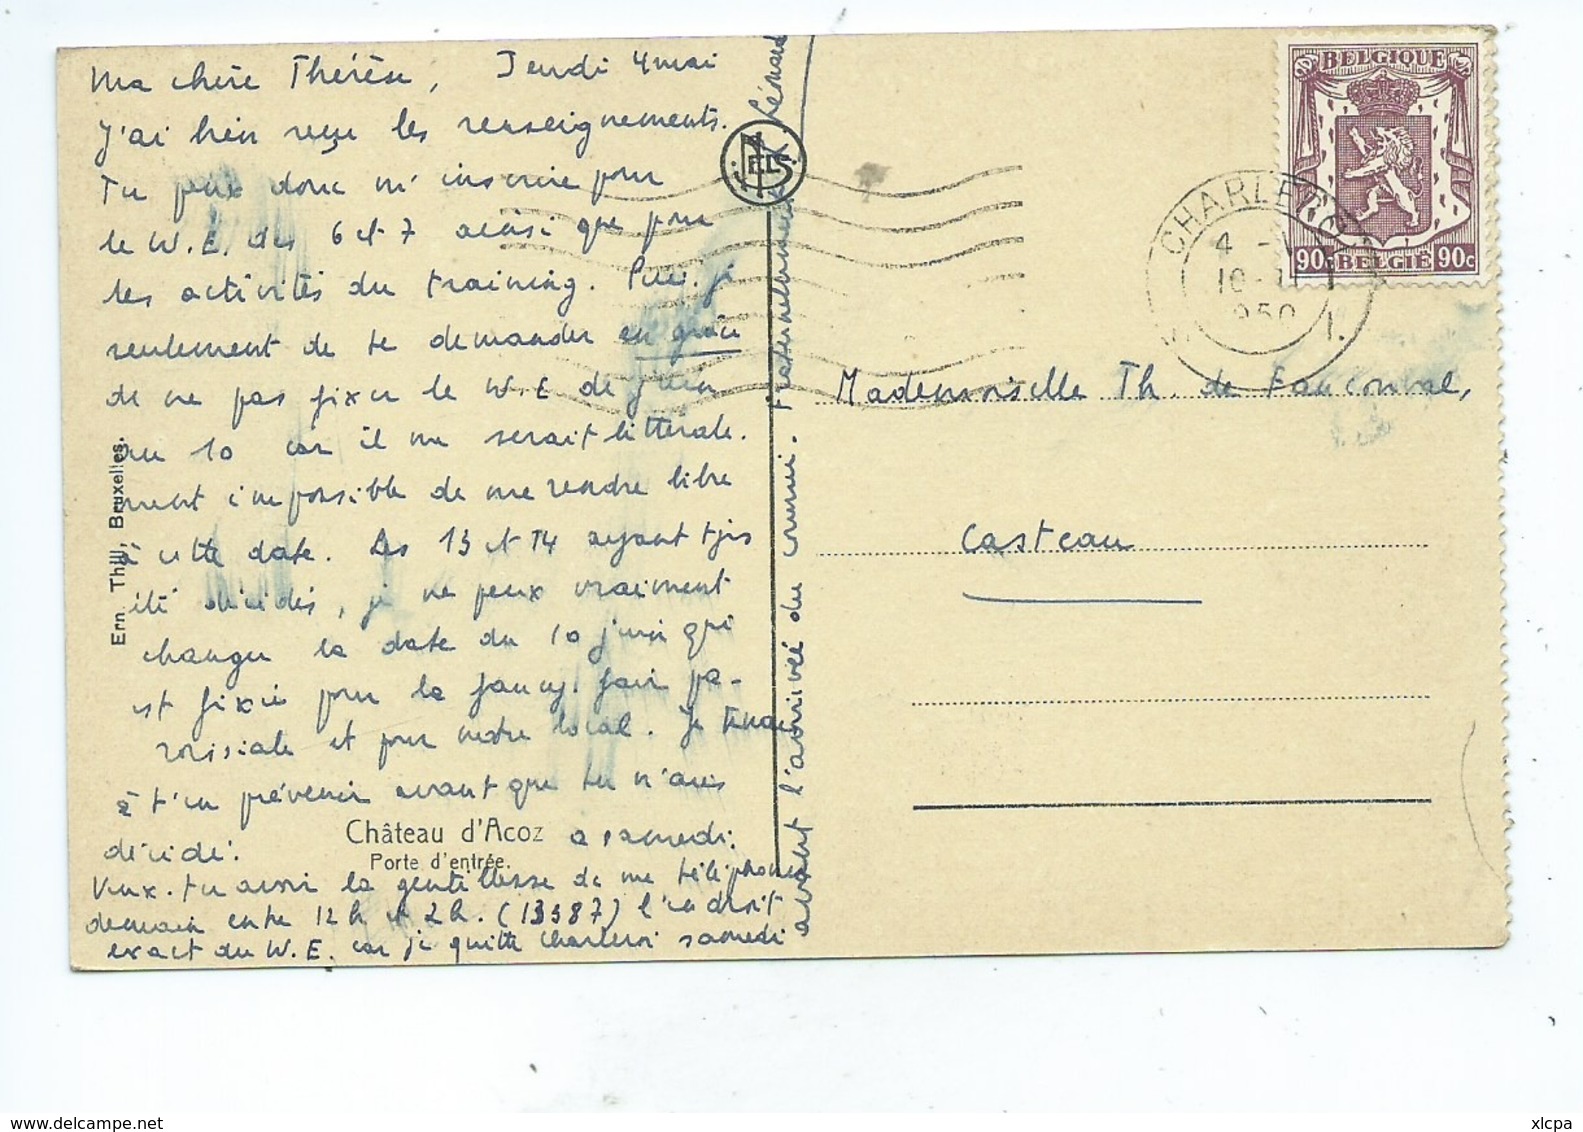 Ma chère Thérèse, Jeudi 4 mai
J'ai bien reçu les renseignements.
Tu peux donc m'inscrire pour
le W.E. des 6 et 7 ainsi que pour
les activités du training. Puis-je
seulement de te demander en grâce
de ne pas fixer le W.E de juin
au 10 car il me serait littérale-
ment impossible de me rendre libre
à cette date. Les 13 et 14 ayant tjrs
été décidés, je ne peux vraiment
changer la date du 10 juin qui
est fixée pour la fancy-fair pa-
roissiale et pour notre local. Je tenais
à t'en prévenir avant que tu n'aies
décidé. a samedi.
Veux-tu aussi la gentillesse de me téléphoner
demain entre 12h et 2h. (13387) l'endroit
exact du W.E. car je quitte Charleroi samedi
avant l'arrivée du courrier. Fraternellement
NELS
Ern. Thill, Bruxelles.
Château d'Acoz
Porte d'entrée.
BELGIQUE
90c BELGIË 90c
CHARLEROI
4 -V
10-11
1950
1.
Mademoiselle Th. de Fauconval,
Casteau
delcampe.net
xlcpa